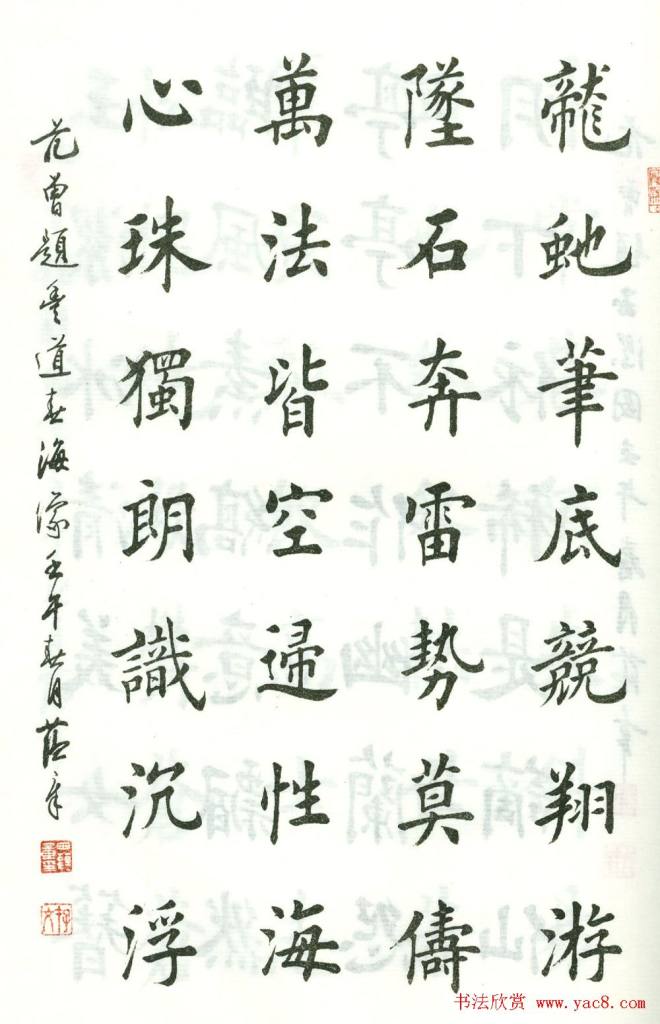 龍虵筆底競翔游
墜石奔雷勢莫儔
萬法皆空歸性海
心珠獨朗識沉浮
范曾題 道春海 壬午春月
书法欣赏 www.yac8.com